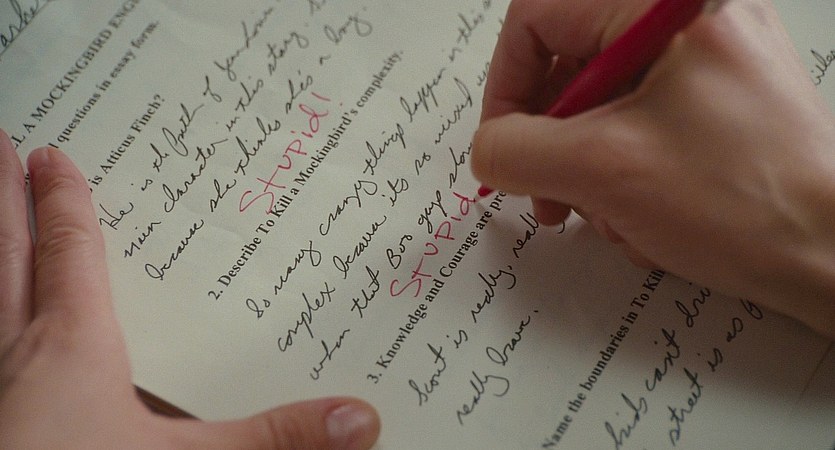 LL A MOCKINGBIRD ENG
questions in essay form.
is Atticus Finch?
He is the
main character in this story. 
because she thinks she's a boy.
Stupid!
2. Describe To Kill a Mockingbird's complexity.
So many crazy things happen in this
complex because it's so mixed
when that Boo guy
Stupid
3. Knowledge and Courage are pr
Scout is really, really
really brave.
Name the boundaries in To Kill
birds can't
street is as